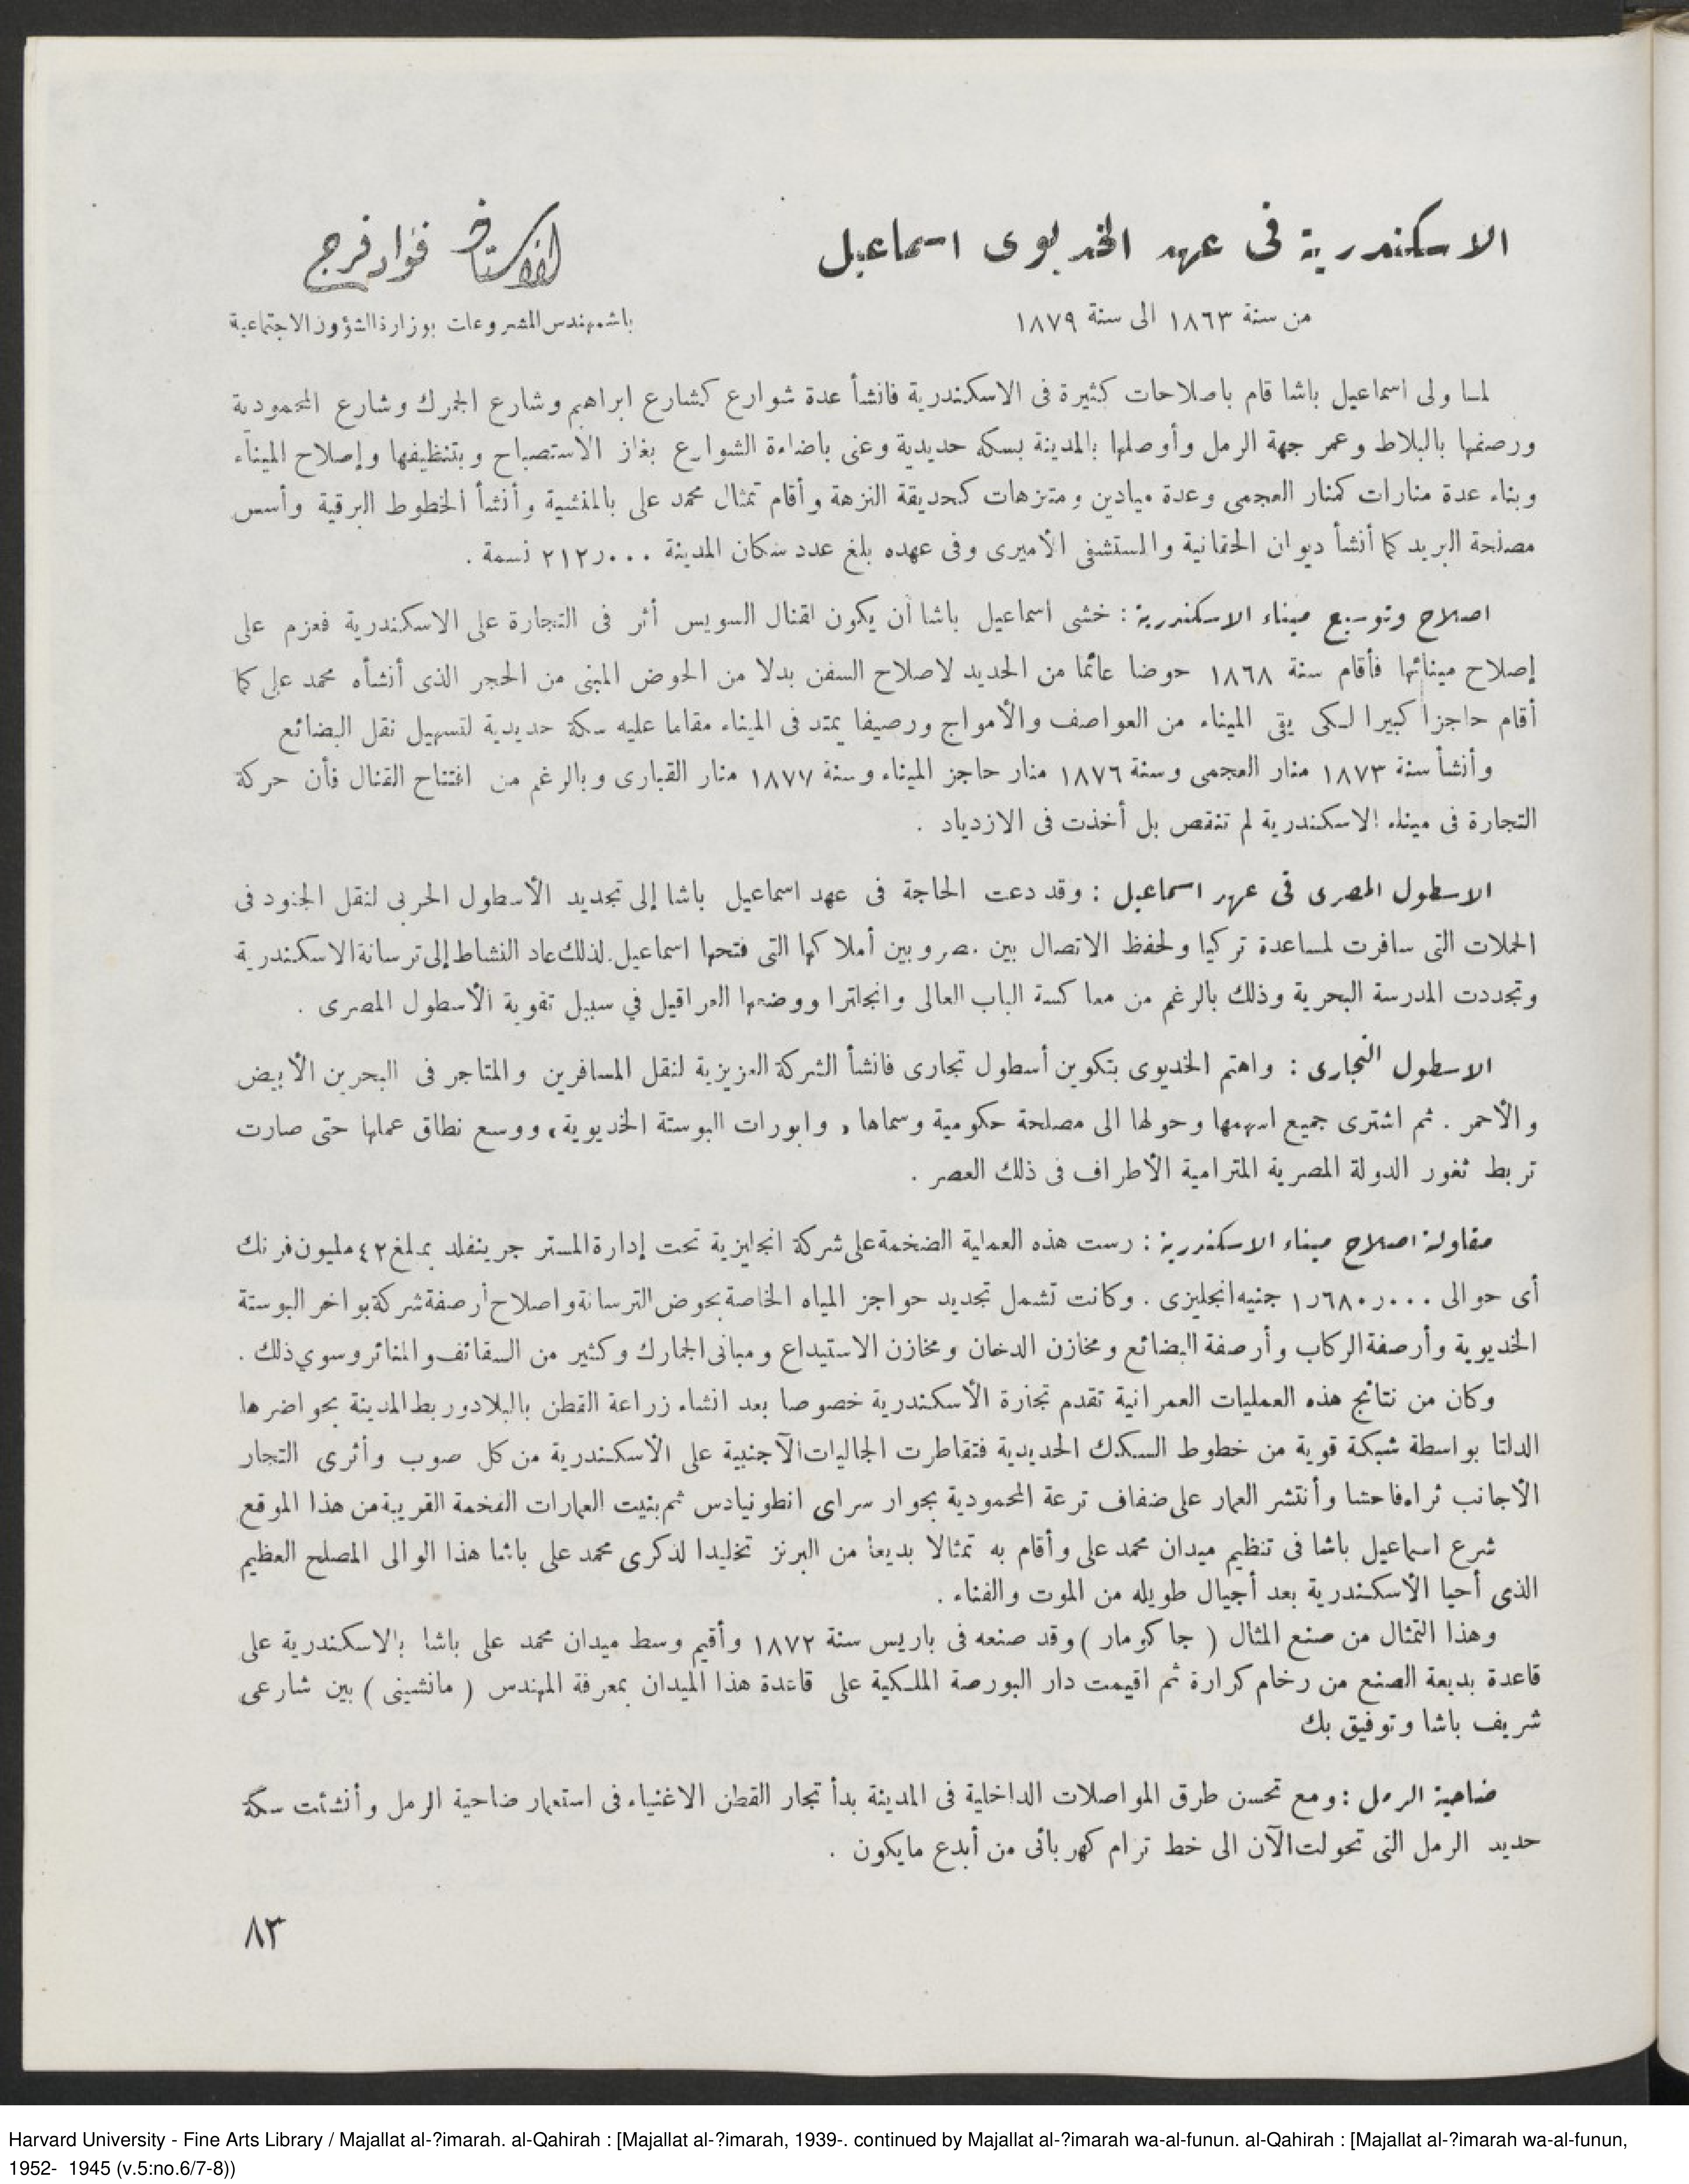 الاسكندرية فى عهد الخديوى اسماعيل
الاستاذ فؤاد فرج
من سنة ١٨٦٣ الى سنة ١٨٧٩
باشمهندس المشروعات بوزارة الشؤون الاجتماعية
لما ولى اسماعيل باشا قام باصلاحات كثيرة فى الاسكندرية فانشأ عدة شوارع كشارع ابراهيم وشارع الجمرك وشارع المحمودية
ورصفها بالبلاط وعمر جهة الرمل وأوصلها بالمدينة بسكة حديدية وعنى باضاءة الشوارع بغاز الاستصباح وبتنظيفها وإصلاح الميناء
وبناء عدة منارات كمنار العجمى وعدة ميادين ومتنزهات كحديقة النزهة وأقام تمثال محمد على بالمنشية وأنشأ الخطوط البرقية وأسس
مصلحة البريد كما أنشأ ديوان الحقانية والمستشفى الأميرى وفى عهده بلغ عدد سكان المدينة ٢١٢ر٠٠٠ نسمة .
اصلاح وتوسيع ميناء الاسكندرية : خشى اسماعيل باشا أن يكون لقنال السويس أثر فى التجارة على الاسكندرية فعزم على
إصلاح مينائها فأقام سنة ١٨٦٨ حوضا عائما من الحديد لاصلاح السفن بدلا من الحوض المبنى من الحجر الذى أنشأه محمد على كما
أقام حاجزا كبيرا لكى يقى الميناء من العواصف والأمواج ورصيفا يمتد فى الميناء مقاما عليه سكة حديدية لتسهيل نقل البضائع
وأنشأ سنة ١٨٧٣ منار العجمى وسنة ١٨٧٦ منار حاجز الميناء وسنة ١٨٧٧ منار القبارى وبالرغم من افتتاح القنال فأن حركة
التجارة فى ميناء الاسكندرية لم تنقص بل أخذت فى الازدياد .
الاسطول المصرى فى عهد اسماعيل : وقد دعت الحاجة فى عهد اسماعيل باشا إلى تجديد الأسطول الحربى لنقل الجنود فى
الحملات التى سافرت لمساعدة تركيا ولحفظ الاتصال بين مصر وبين أملاكها التى فتحها اسماعيل. لذلك عاد النشاط إلى ترسانة الاسكندرية
وتجددت المدرسة البحرية وذلك بالرغم من معاكسة الباب العالى وانجلترا ووضعها العراقيل في سبيل تقوية الأسطول المصرى .
الاسطول التجارى : واهتم الخديوى بتكوين أسطول تجارى فانشأ الشركة العزيزية لنقل المسافرين والمتاجر فى البحرين الأبيض
والأحمر . ثم اشترى جميع اسهمها وحولها الى مصلحة حكومية وسماها « وابورات البوستة الخديوية » ووسع نطاق عملها حتى صارت
تربط ثغور الدولة المصرية المترامية الأطراف فى ذلك العصر .
مقاولة اصلاح ميناء الاسكندرية : رست هذه العملية الضخمة على شركة انجليزية تحت إدارة المستر جرينفلد بمبلغ ٤٢ مليون فرنك
أى حوالى ١ر٦٨٠ر٠٠٠ جنيه انجليزى . وكانت تشمل تجديد حواجز المياه الخاصة بحوض الترسانة واصلاح أرصفة شركة بواخر البوستة
الخديوية وأرصفة الركاب وأرصفة البضائع ومخازن الدخان ومخازن الاستيداع ومبانى الجمارك وكثير من السقائف والمنائر وسوي ذلك .
وكان من نتائج هذه العمليات العمرانية تقدم تجارة الأسكندرية خصوصا بعد انشاء زراعة القطن بالبلاد وربط المدينة بحواضرها
الدلتا بواسطة شبكة قوية من خطوط السكك الحديدية فتقاطرت الجاليات الآجنبية على الأسكندرية من كل صوب وأثرى التجار
الأجانب ثراء فاحشا وأنتشر العمار على ضفاف ترعة المحمودية بجوار سراى انطونيادس ثم بنيت العمارات الفخمة القريبة من هذا الموقع
شرع اسماعيل باشا فى تنظيم ميدان محمد على وأقام به تمثالا بديعا من البرنز تخليدا لذكرى محمد على باشا هذا الوالى المصلح العظيم
الذى أحيا الأسكندرية بعد أجيال طويله من الموت والفناء .
وهذا التمثال من صنع المثال ( جاكومار ) وقد صنعه فى باريس سنة ١٨٧٢ وأقيم وسط ميدان محمد على باشا بالاسكندرية على
قاعدة بديعة الصنع من رخام كرارة ثم اقيمت دار البورصة الملكية على قاعدة هذا الميدان بمعرفة المهندس ( مانشينى ) بين شارعى
شريف باشا وتوفيق بك
ضاحية الرمل : ومع تحسن طرق المواصلات الداخلية فى المدينة بدأ تجار القطن الاغنياء فى استعمار ضاحية الرمل وأنشئت سكة
حديد الرمل التى تحولت الآن الى خط ترام كهربائى من أبدع مايكون .
٨٣
Harvard University - Fine Arts Library / Majallat al-?imarah. al-Qahirah : [Majallat al-?imarah, 1939-. continued by Majallat al-?imarah wa-al-funun. al-Qahirah : [Majallat al-?imarah wa-al-funun,
1952- 1945 (v.5:no.6/7-8))